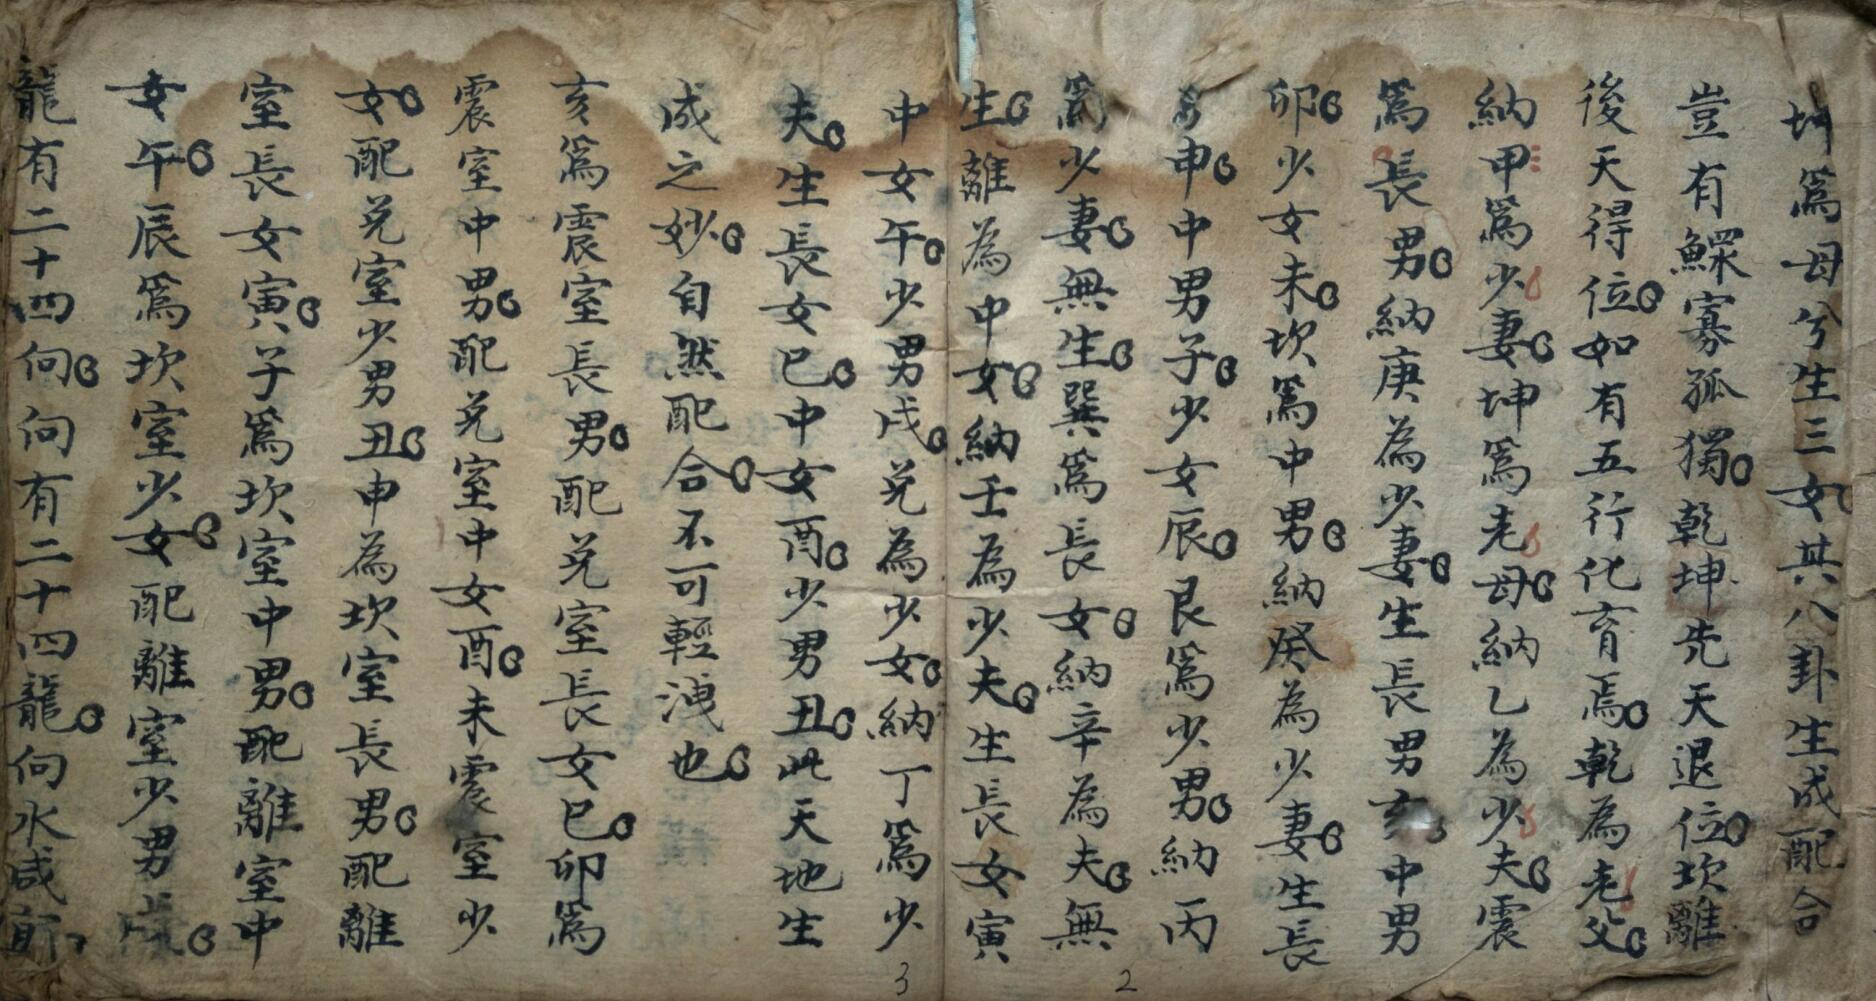 坤爲母兮生三女其八卦生成配合
豈有鰥寡孤獨乾坤先天退位坎離
後天得位如有五行化育焉乾為老父
納甲爲少妻坤爲老母納乙為少夫震
爲長男納庚為少妻生長男亥中男
卯少女未坎爲中男納癸為少妻生長
男申中男子少女辰艮爲少男納丙
爲少妻無生巽爲長女納辛為夫無
生離為中女納壬為少夫生長女寅
中女午少男戌兌為少女納丁爲少
夫生長女巳中女酉少男丑此天地生
成之妙自然配合不可輕洩也
亥爲震室長男配兌室長女巳卯爲
震室中男配兌室中女酉未震室少
女配兌室少男丑申為坎室長男配離
室長女寅子爲坎室中男配離室中
女午辰爲坎室少女配離室少男戌
龍有二十四向向有二十四龍向水咸
3
2